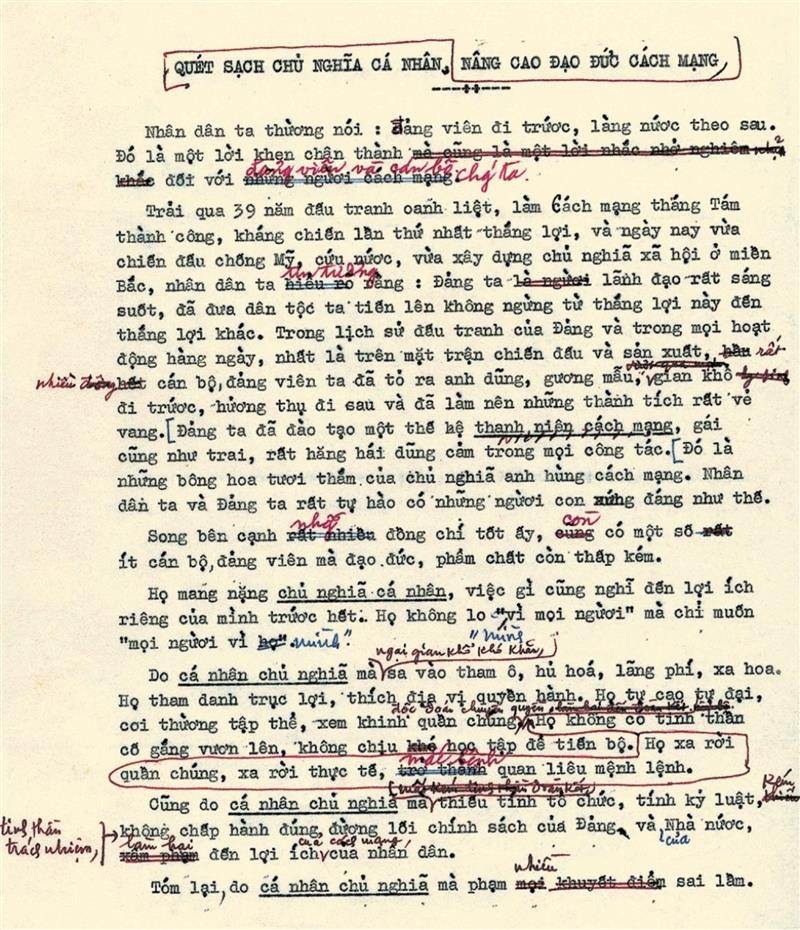 QUÉT SẠCH CHỦ NGHĨA CÁ NHÂN, NÂNG CAO ĐẠO ĐỨC CÁCH MẠNG
Nhân dân ta thường nói : đảng viên đi trước, làng nước theo sau.
Đó là một lời khen chân thành mà cũng là một lời nhắc nhở nghiêm
đảng viên và cán bộ
khắc đối với những người cách mạng. chúng ta.
Trải qua 39 năm đấu tranh oanh liệt, làm Cách mạng thắng Tám
thành công, kháng chiến lần thứ nhất thắng lợi, và ngày nay vừa
chiến đấu chống Mỹ, cứu nước, vừa xây dựng chủ nghĩa xã hội ở miền
tin tưởng
Bắc, nhân dân ta hiểu rõ rằng : Đảng ta là người lãnh đạo rất sáng
suốt, đã đưa dân tộc ta tiến lên không ngừng từ thắng lợi này đến
thắng lợi khác. Trong lịch sử đấu tranh của Đảng và trong mọi hoạt
động hàng ngày, nhất là trên mặt trận chiến đấu và sản xuất, hầu rất
nhiều hết cán bộ, đảng viên ta đã tỏ ra anh dũng, gương mẫu, gian khổ
đi trước, hưởng thụ đi sau và đã làm nên những thành tích rất vẻ
vang. [Đảng ta đã đào tạo một thế hệ thanh niên cách mạng, gái
cũng như trai, rất hăng hái dũng cảm trong mọi công tác. [Đó là
những bông hoa tươi thắm của chủ nghĩa anh hùng cách mạng. Nhân
dân ta và Đảng ta rất tự hào có những người con xứng đáng như thế.
những còn
Song bên cạnh rất nhiều đồng chí tốt ấy, cũng có một số rất
ít cán bộ, đảng viên mà đạo đức, phẩm chất còn thấp kém.
Họ mang nặng chủ nghĩa cá nhân, việc gì cũng nghĩ đến lợi ích
riêng của mình trước hết. Họ không lo "vì mọi người" mà chỉ muốn
mình
"mọi người vì họ". mình".
ngại gian khổ khó khăn,
Do cá nhân chủ nghĩa mà sa vào tham ô, hủ hoá, lãng phí, xa hoa.
Họ tham danh trục lợi, thích địa vị quyền hành. Họ tự cao tự đại,
độc đoán chuyên quyền
coi thường tập thể, xem khinh quần chúng, Họ không có tinh thần
cố gắng vươn lên, không chịu khó học tập để tiến bộ. Họ xa rời
mắc bệnh
quần chúng, xa rời thực tế, trở thành quan liêu mệnh lệnh.
Cũng do cá nhân chủ nghĩa mà thiếu tính tổ chức, tính kỷ luật, kém
tinh thần trách nhiệm, không chấp hành đúng đường lối chính sách của Đảng, và Nhà nước,
làm hại của cách mạng, của
xâm phạm đến lợi ích của nhân dân.
nhiều
Tóm lại, do cá nhân chủ nghĩa mà phạm mọi khuyết điểm sai lầm.